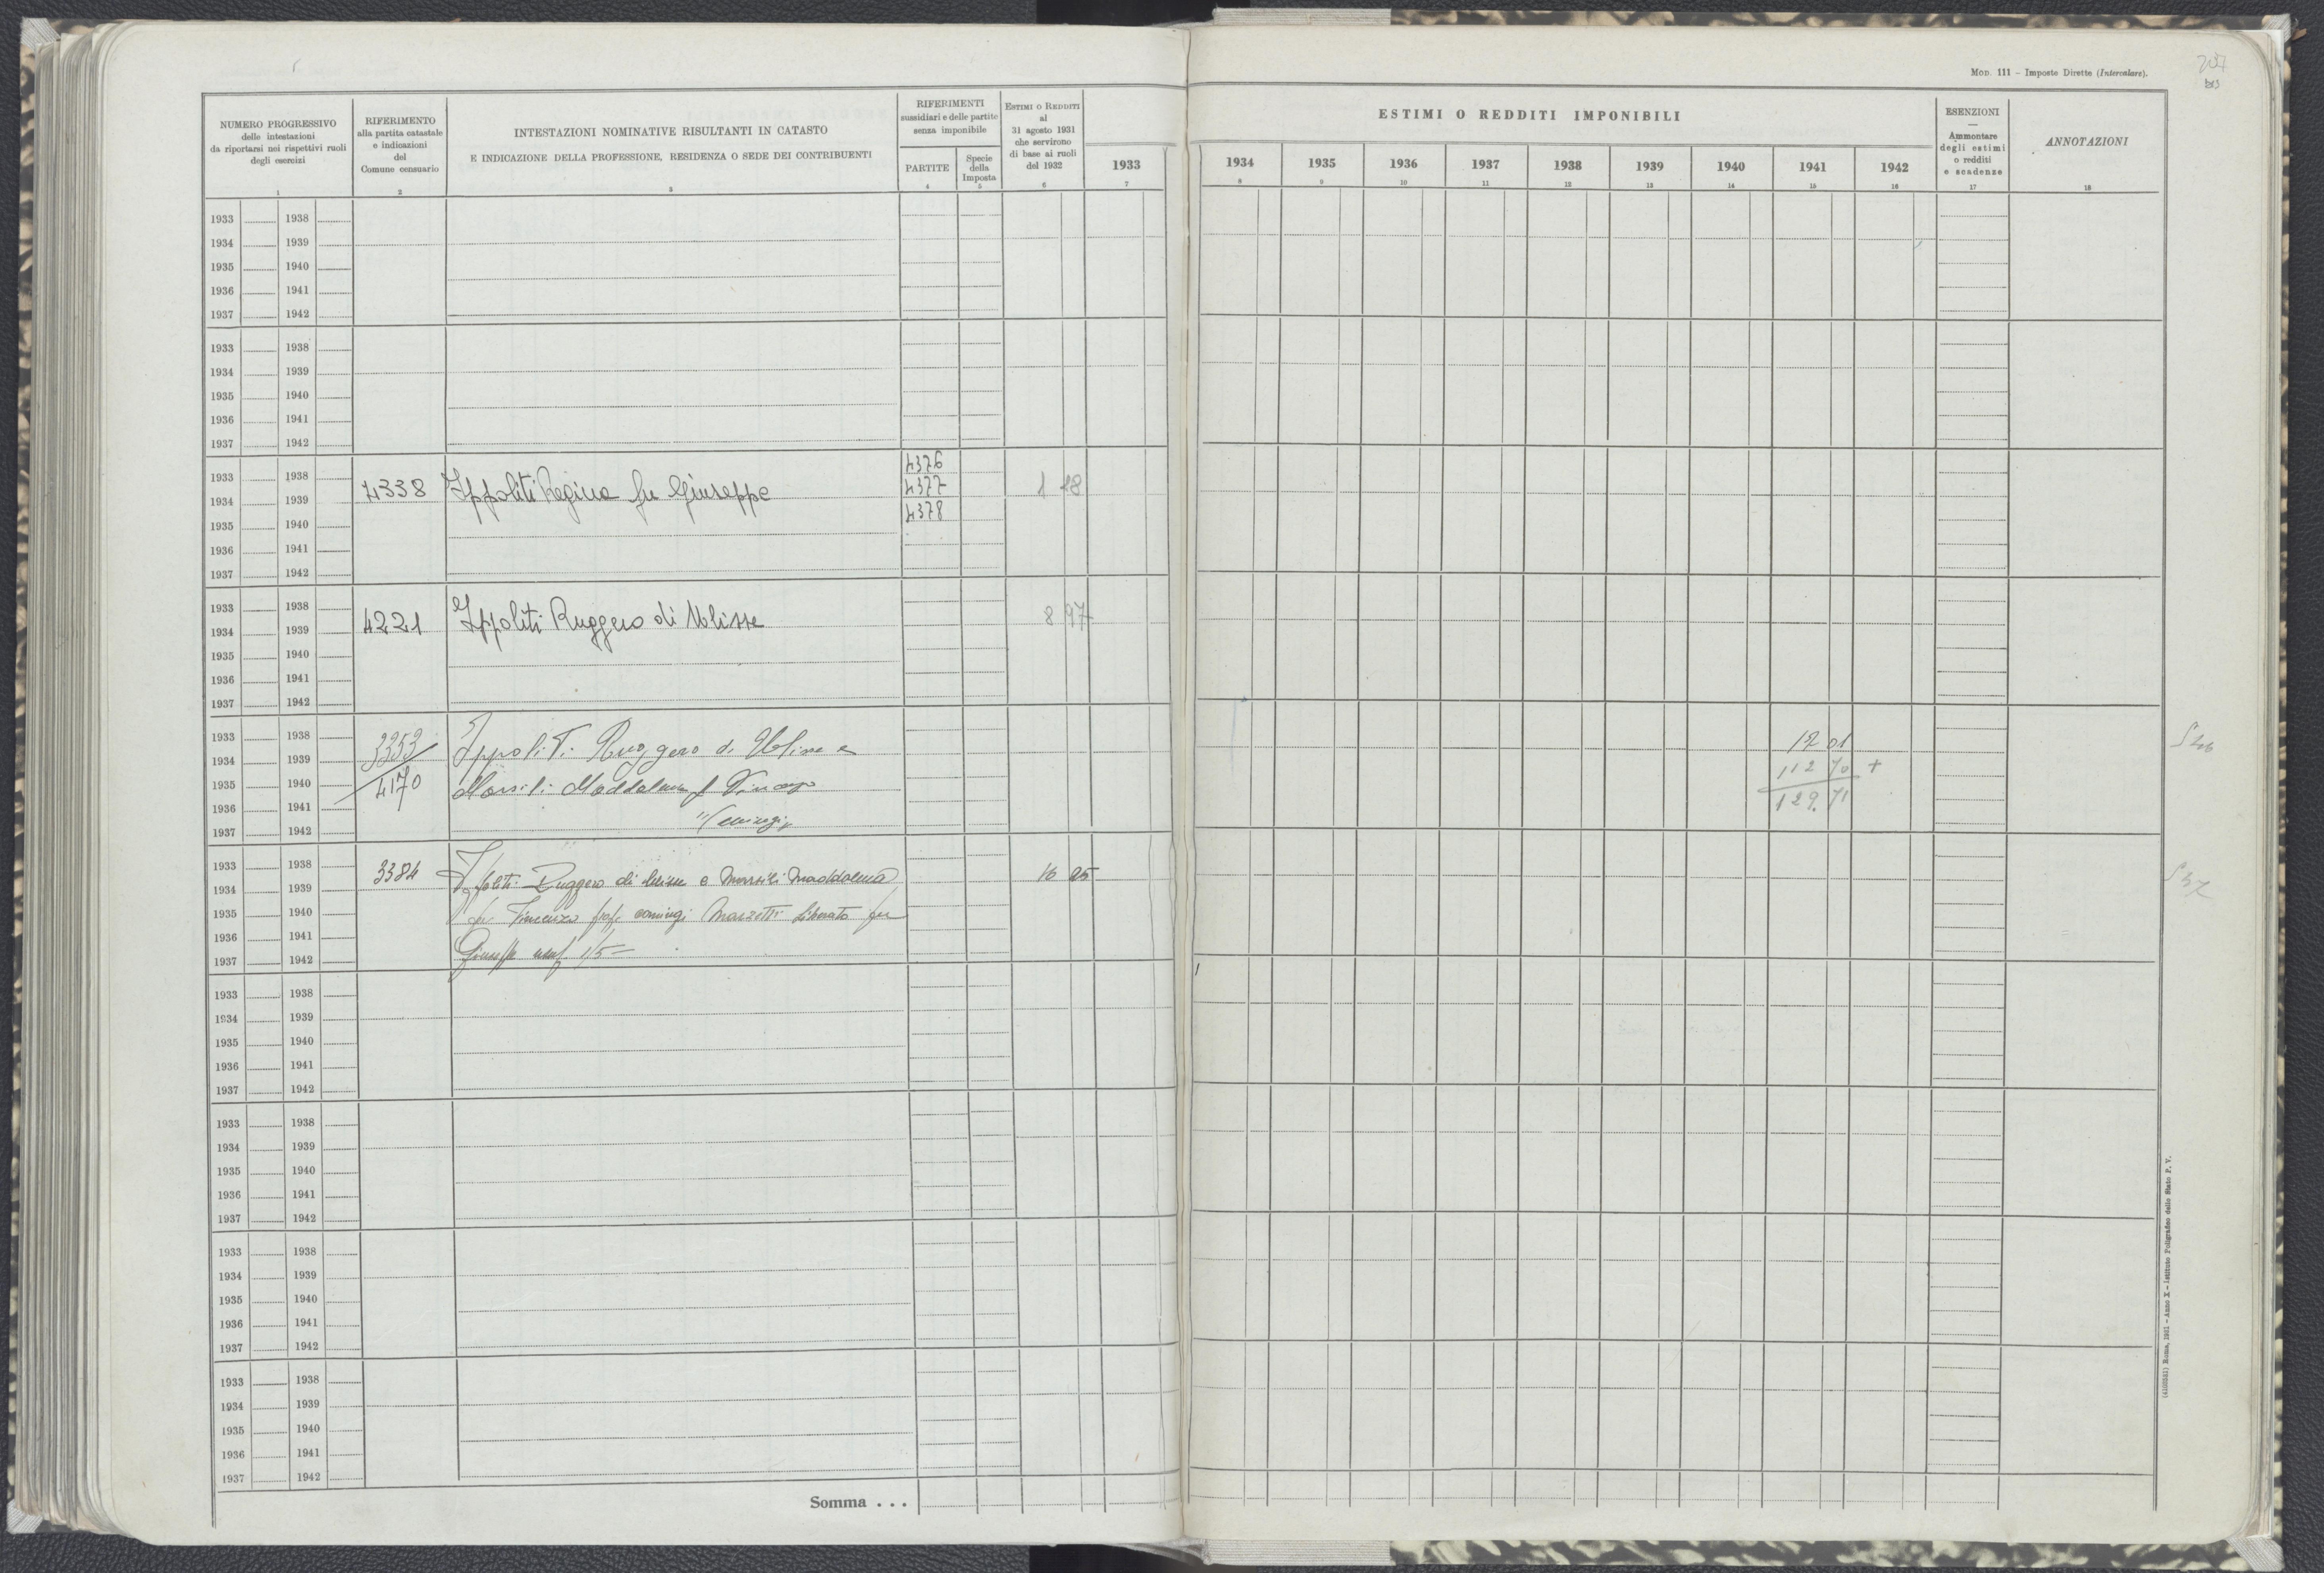 207
bis
MOD. 111 – Imposte Dirette (Intercalare).
NUMERO PROGRESSIVO
delle intestazioni
da riportarsi nei rispettivi ruoli
degli esercizi
1
RIFERIMENTO
alla partita catastale
e indicazioni
del
Comune censuario
2
INTESTAZIONI NOMINATIVE RISULTANTI IN CATASTO
E INDICAZIONE DELLA PROFESSIONE, RESIDENZA O SEDE DEI CONTRIBUENTI
3
RIFERIMENTI
sussidiari e delle partite
senza imponibile
PARTITE
4
Specie
della
Imposta
5
ESTIMI O REDDITI
al
31 agosto 1931
che servirono
di base ai ruoli
del 1932
6
1933
7
ESTIMI O REDDITI IMPONIBILI
1934 1935 1936 1937 1938 1939 1940 1941 1942
8 9 10 11 12 13 14 15 16
ESENZIONI
—
Ammontare
degli estimi
o redditi
e scadenze
17
ANNOTAZIONI
18
1933 1938
1934 1939
1935 1940
1936 1941
1937 1942
1933 1938
1934 1939
1935 1940
1936 1941
1937 1942
4376
1933 1938
4338 Ippoliti Regina fu Giuseppe 4377 1 18
1934 1939
4378
1935 1940
1936 1941
1937 1942
1933 1938
4221 Ippoliti Ruggero di Ulisse 8 97
1934 1939
1935 1940
1936 1941
1937 1942
1933 1938
3353 Ippoliti Ruggero di Ulisse e 17 01
1934 1939
112 70 +
1935 1940
4170 Marsili Maddalena f Vincenzo
129 71
1936 1941
coniugi
1937 1942
1933 1938
3384 Ippoliti Ruggero di Ulisse e Marsili Maddalena 16 05
1934 1939
fu Vincenzo coniugi Marzetti Liberato fu
1935 1940
1936 1941
Giuseppe usuf 1/5
1937 1942
1933 1938
1934 1939
1935 1940
1936 1941
1937 1942
1933 1938
1934 1939
1935 1940
1936 1941
1937 1942
1933 1938
1934 1939
1935 1940
1936 1941
1937 1942
1933 1938
1934 1939
1935 1940
1936 1941
1937 1942
Somma . . .
Roma, 1931 – Anno X – Istituto Poligrafico dello Stato P. V.